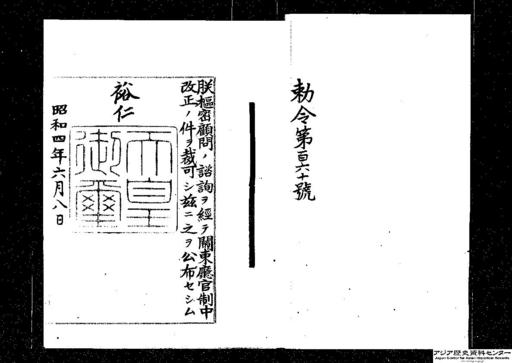 勅令第百六十號
朕樞密顧問ノ諮詢ヲ經テ關東廳官制中
改正ノ件ヲ裁可シ茲ニ之ヲ公布セシム
裕仁
天皇
御璽
昭和四年六月八日
アジア歴史資料センター
Japan Center for Asian Historical Records